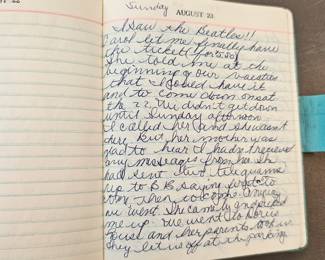 Sunday
AUGUST 23
I Saw the Beatles!!
Carol let me finally have
the ticket (for 5.50)
She told me at the
beginning of our vacation
that I could have it
and to come down on sat
the 22. We didn't get down
until Sunday afternoon
I called her (and she wasn't
there but her mother was
glad to hear I hadn't received
any messages from her. She
had sent two telegrams
up to B.B. saying first to
come then to come
we went. She came by and picked
me up. We went to
house and her parents took us
They let us off at the parking